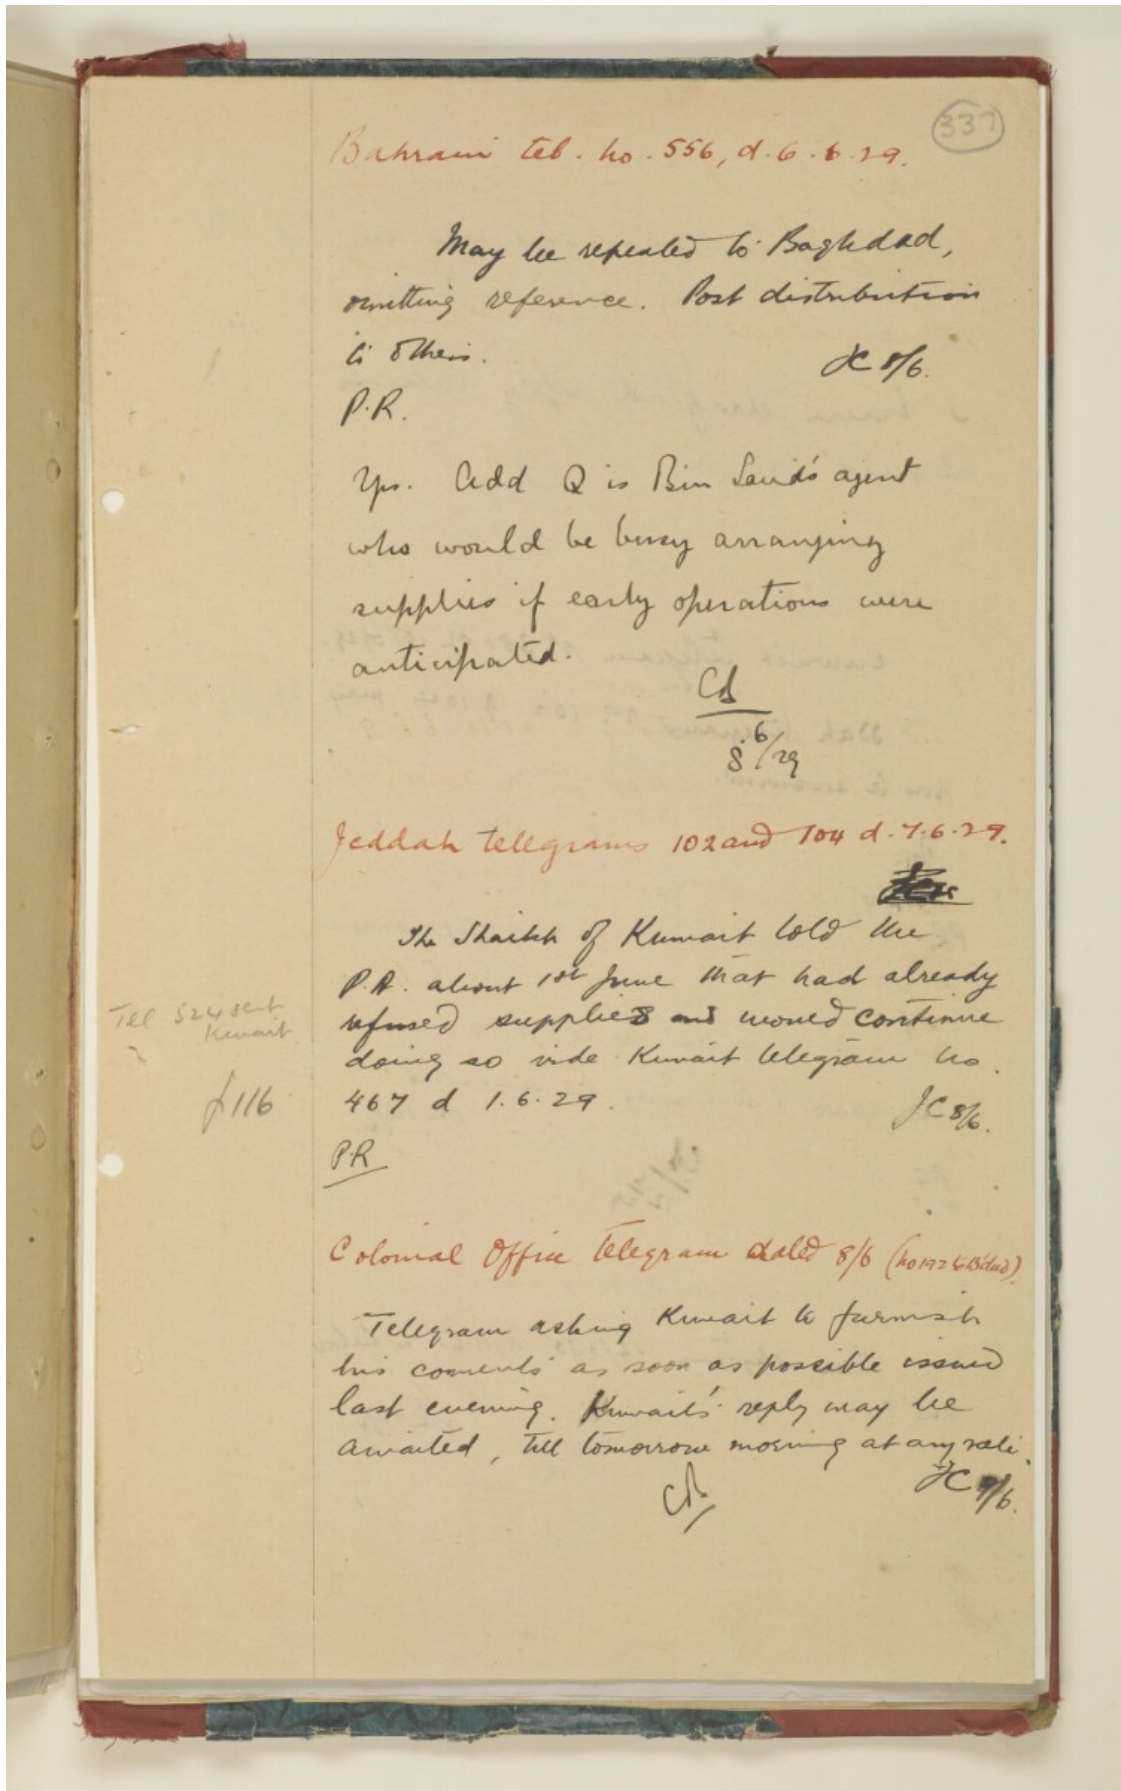 337
Bahrain tel. no. 556, d. 6.6.29.
May be repeated to Baghdad,
omitting reference. Post distribution
to others.
JC 8/6.
P.R.
Yes. Add Q is Bin Saud's agent
who would be busy arranging
supplies if early operations were
anticipated.
8/6/29
Jeddah telegrams 102 and 104 d. 7.6.29.
The Shaikh of Kuwait told the
P.A. about 1st June that had already
refused supplies and would continue
doing so vide Kuwait telegram no.
467 d 1.6.29.
JC 8/6.
Tel 524 sent
Kuwait
f 116
P.R
Colonial Office telegram dated 8/6 (no 172 to B'dad).
Telegram asking Kuwait to furnish
his coments as soon as possible issued
last evening. Kuwait's reply may be
awaited, till tomorrow morning at any rate.
JC 9/6.